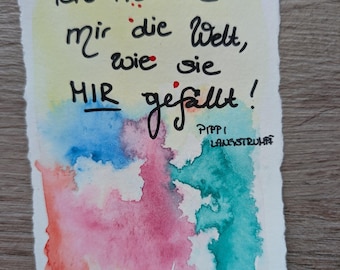 Ich
mir die Welt,
wie sie
MIR gefällt!
PIPPI
LANGSTRUMPF